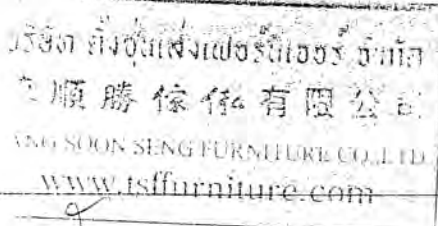 บริษัท ตั่งซุ่นเส่งเฟอร์นิเจอร์ จำกัด
順 勝 傢 俬 有 限 公 司
SOON SENG FURNITURE CO., LTD.
www.tsffurniture.com